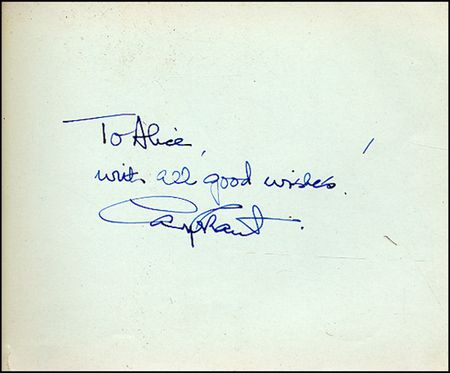 To Alice,
with all good wishes!
Cary Grant.